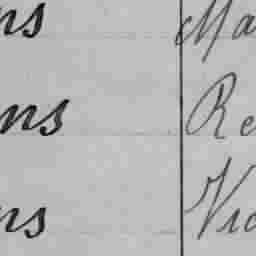 ns Ma
ns Re
ns Vic